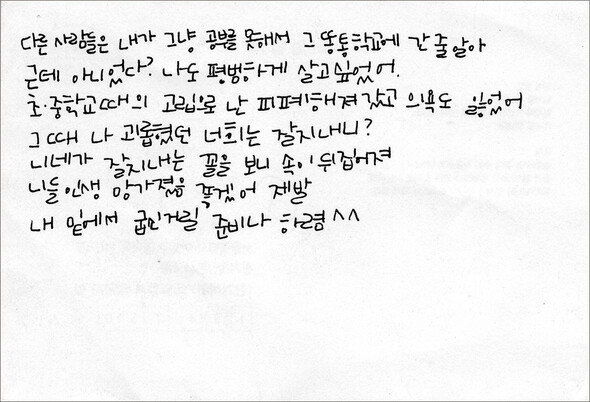 다른 사람들은 내가 그냥 공부를 못해서 그 똥통학교에 간 줄 알아
근데 아니었다? 나도 평범하게 살고싶었어.
초·중학교때의 고립으로 난 피폐해져 갔고 의욕도 잃었어
그때 나 괴롭혔던 너희는 잘지내니?
니네가 잘지내는 꼴을 보니 속이 뒤집어져
니들 인생 망가졌음 좋겠어 제발
내 밑에서 굽신거릴 준비나 하렴 ^^